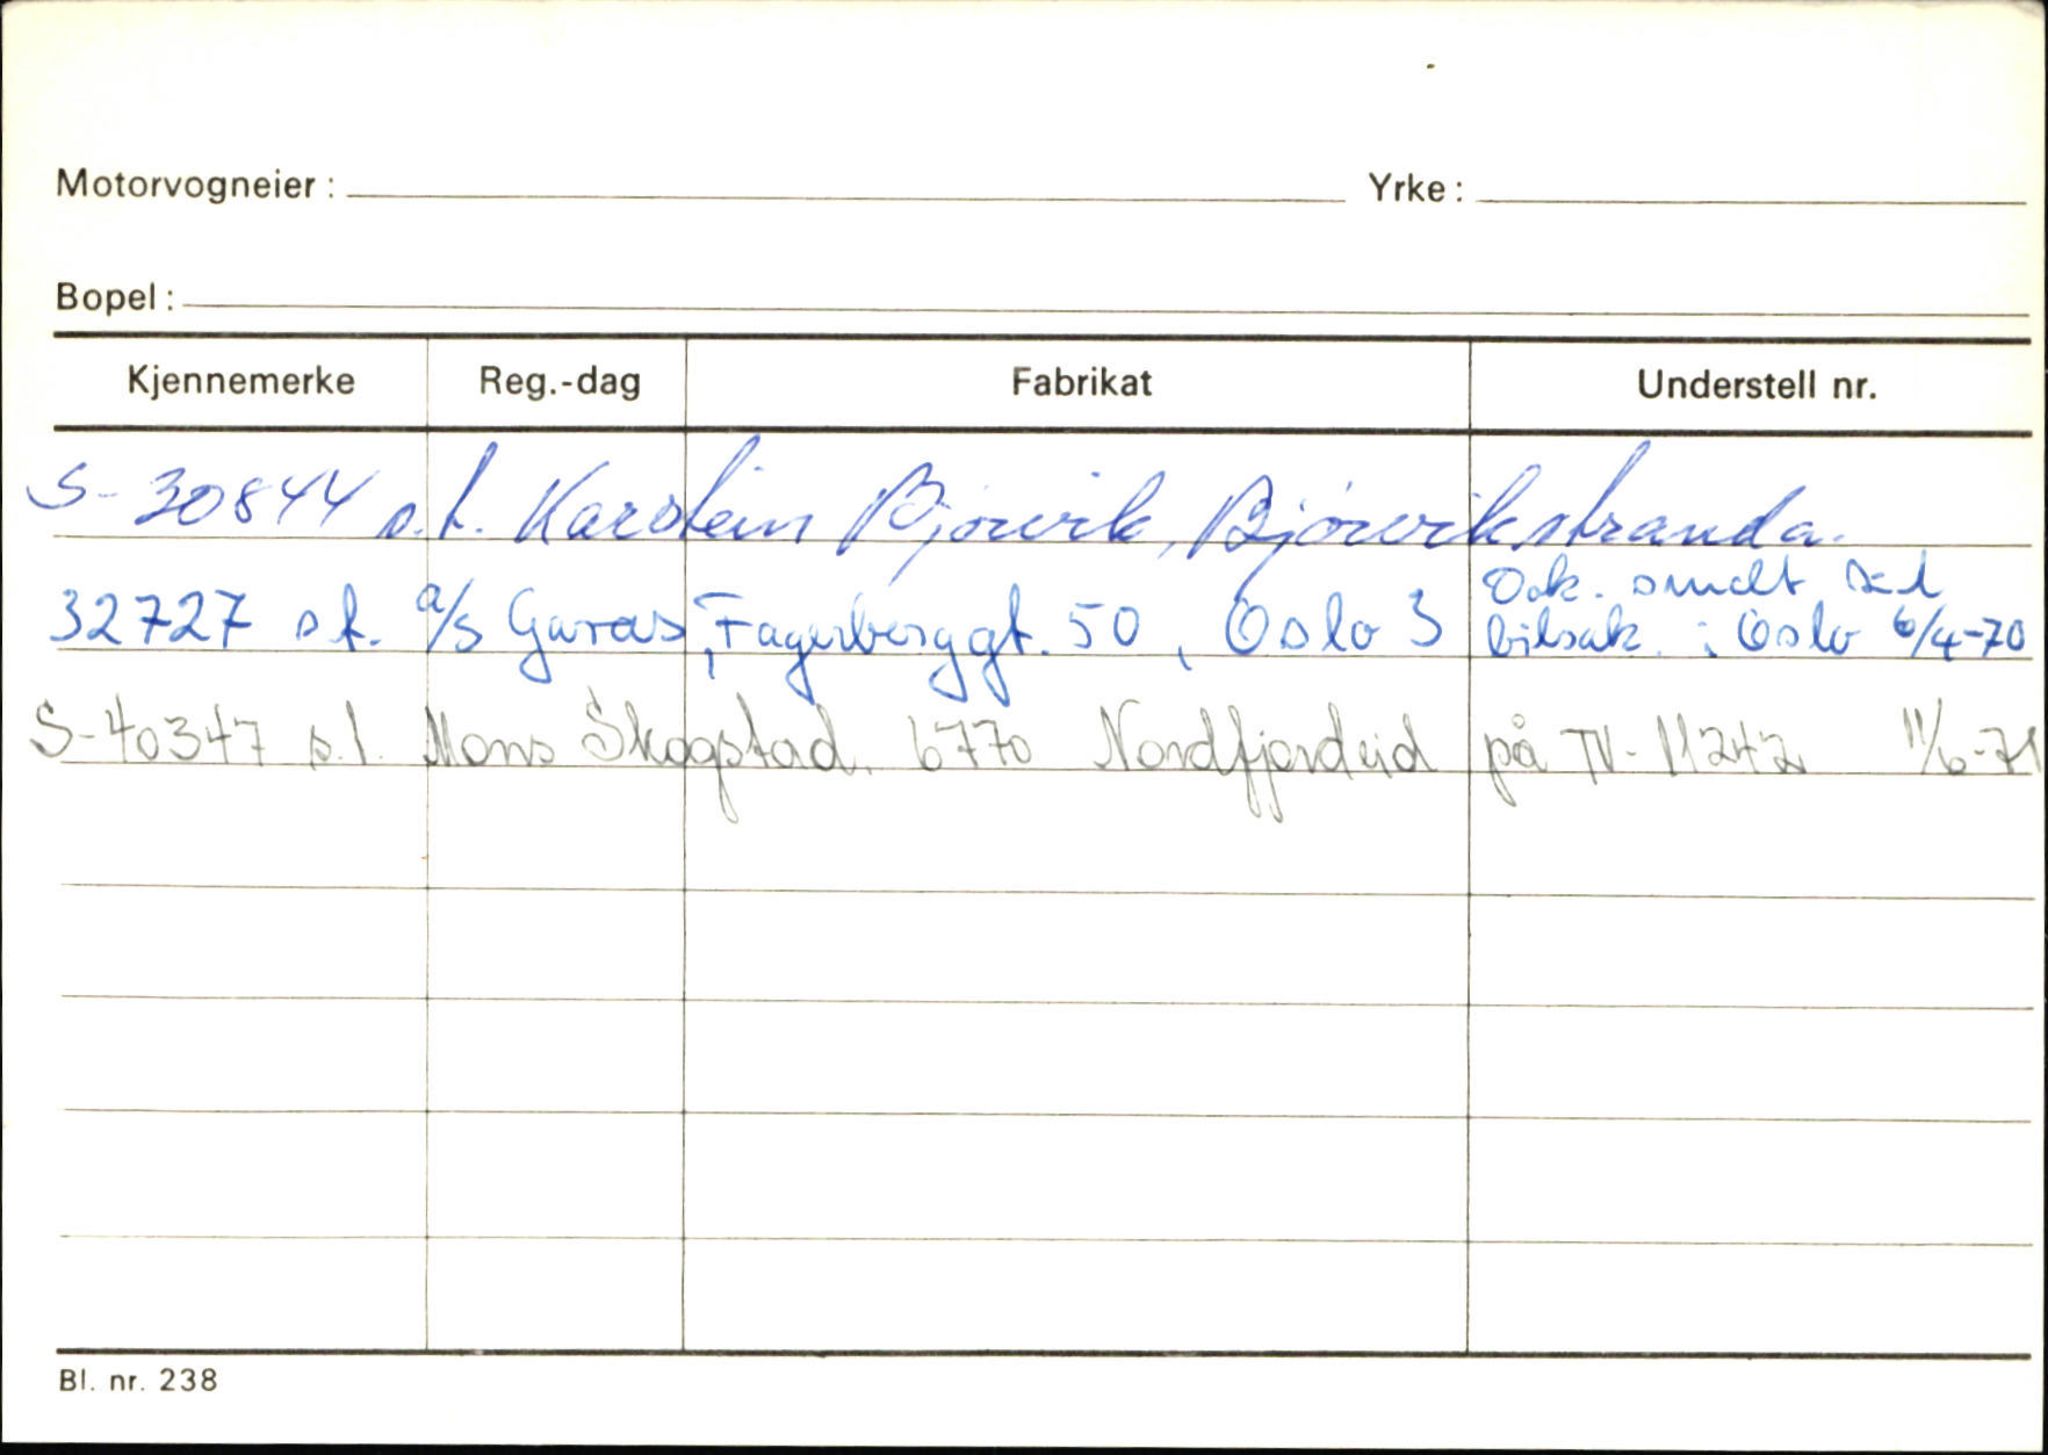 Motorvogneier: Yrke:
Bopel:
Kjennemerke Reg.-dag Fabrikat Understell nr.
S-30844 s.t. Karstein Bjørvik, Bjørvikstranda.
32727 s.t. a/s Garas, Fagerberggt. 50, Oslo 3 Dok. sendt
bilsak. i Oslo 6/4-70
S-40347 s.t. Mons Skogstad. 6770 Nordfjordeid på TV-11242 11/6-71
Bl. nr. 238